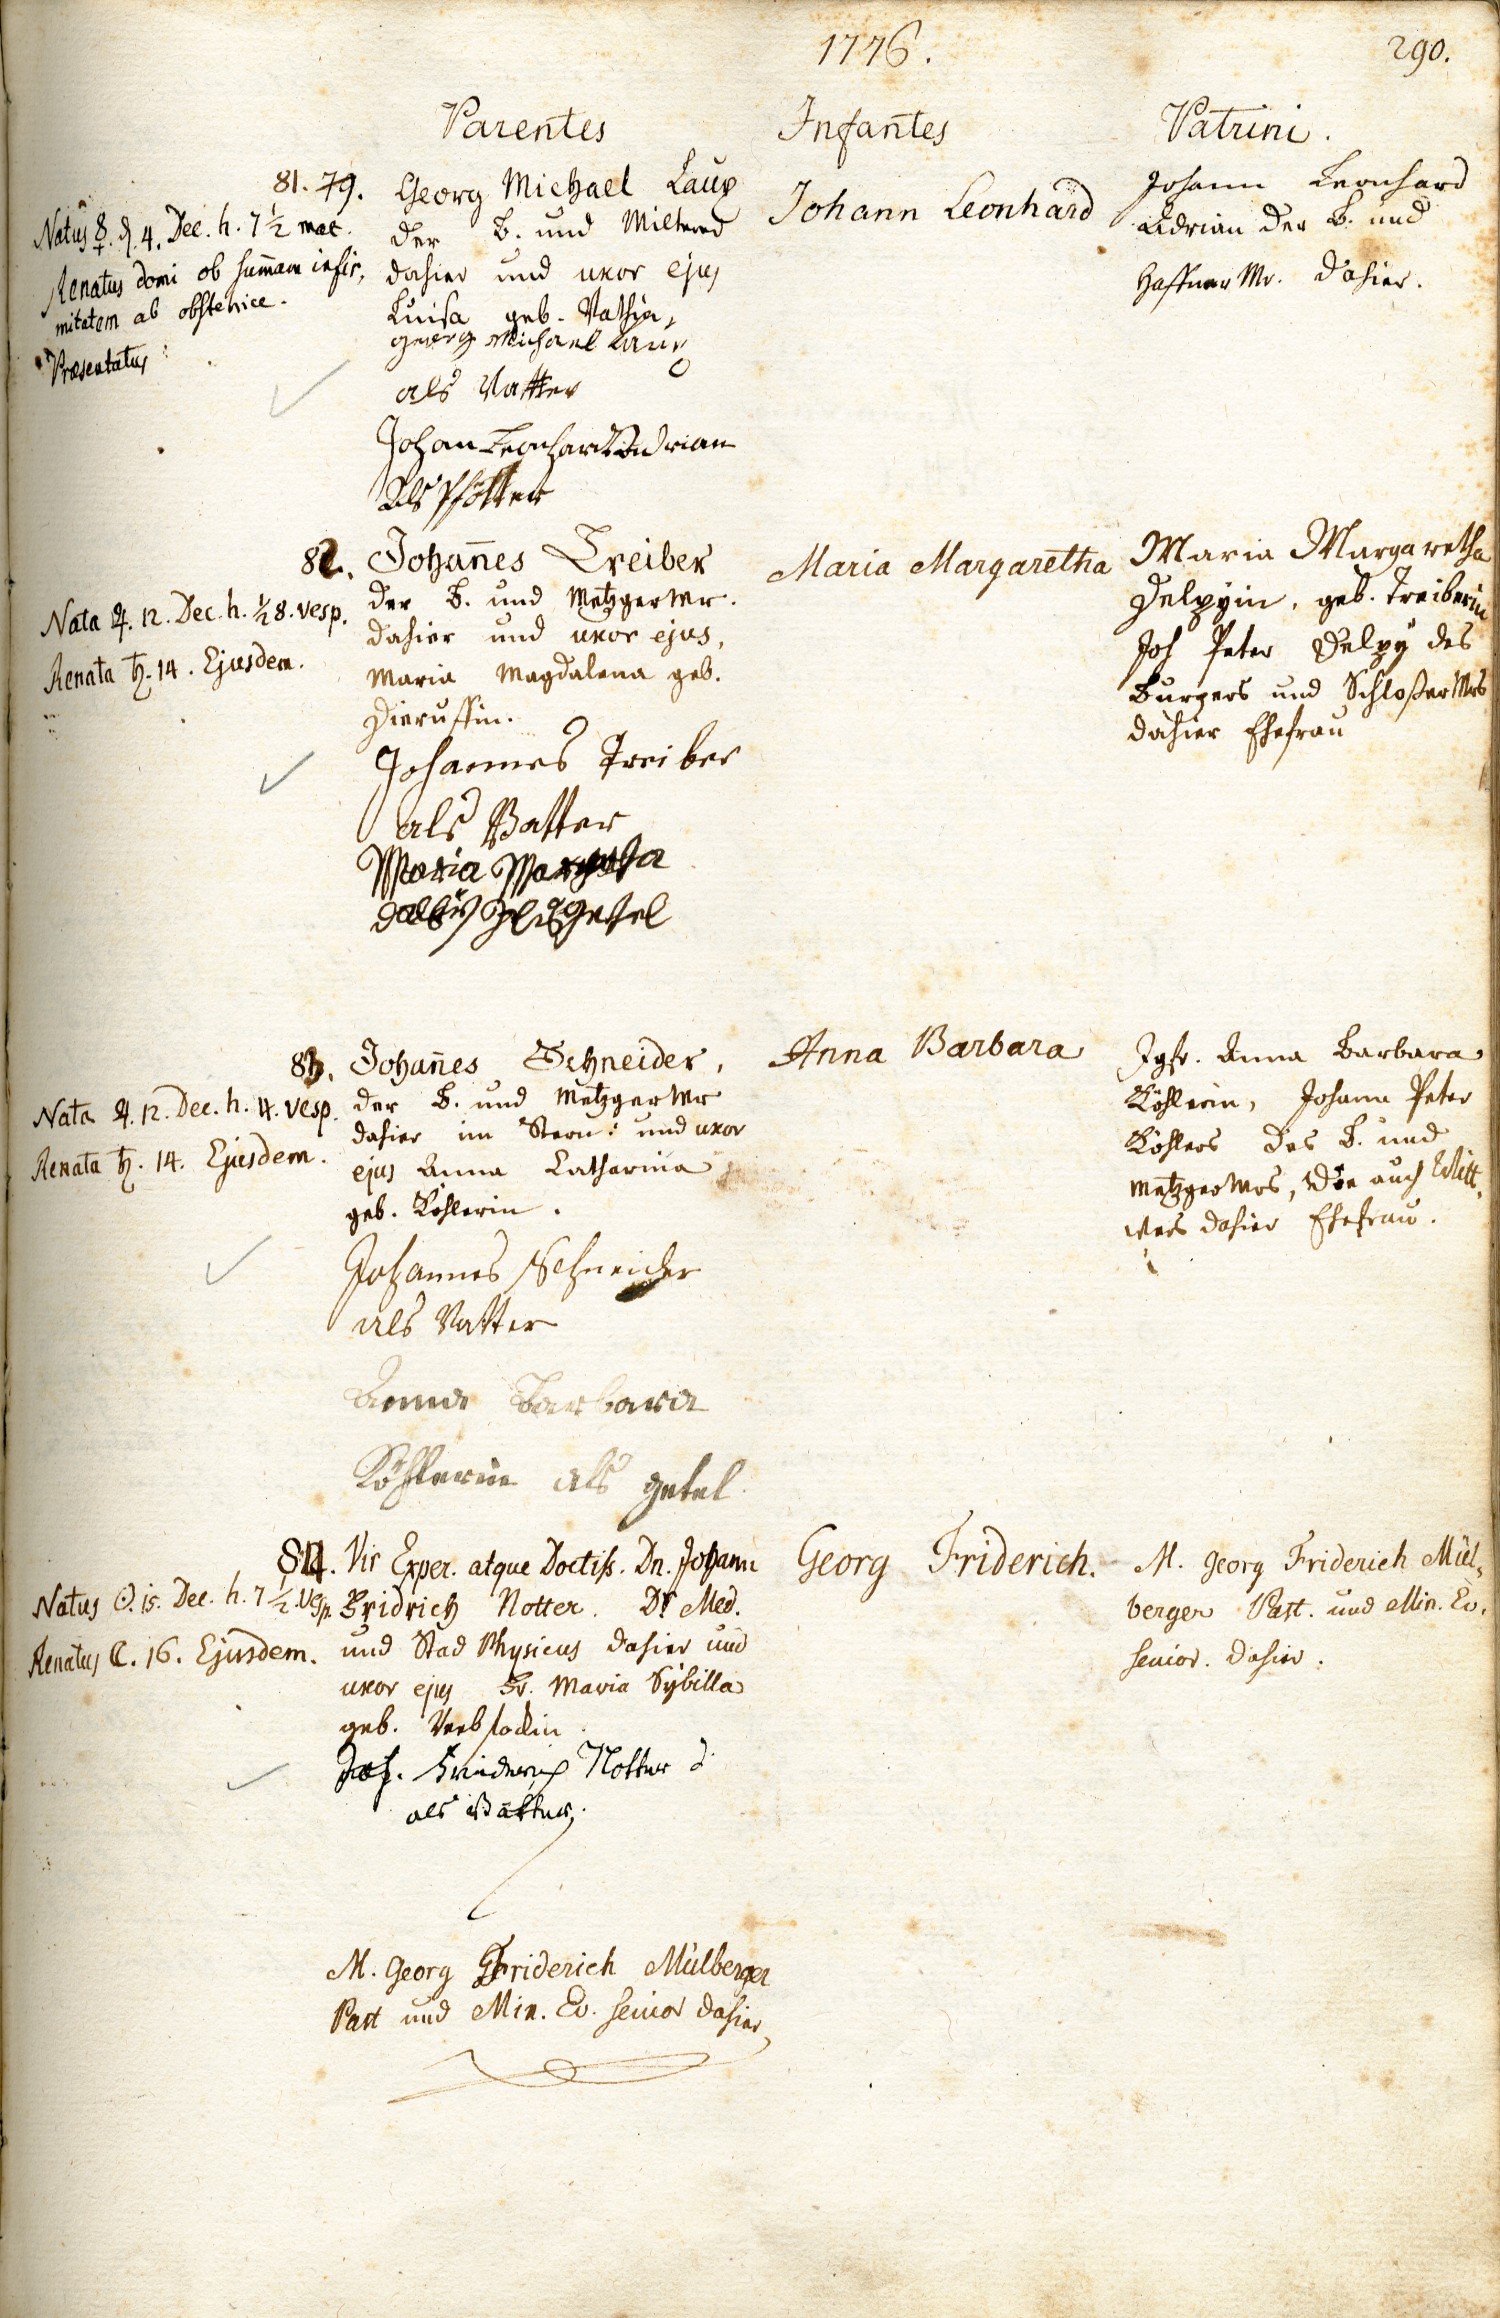 1776.
290.
Parentes
Infantes
Patrini.
81. 79.
Natus ☿. d. 4. Dec. h. 7 ½ mat.
Renatus domi ob sum̄am infir,
mitatem ab obstetrice.
Præsentatus
Georg Michael Laup
der B. und
dahier und uxor ejus
Luisa geb.
georg Michael Laup
als Vatter
Johan Leonhard Adrian
Als Pfötter
Johann Leonhard
Johann Leonhard
Adrian der B. und
Haffner Mr. dahier.
82.
Nata ♃. 12. Dec. h. ½ 8. vesp.
Renata ♄. 14. Ejusdem.
Johan̄es Treiber
der B. und Metzger Mr.
dahier und uxor ejus,
Maria Magdalena geb.
Dieruffin.
Johannes Treiber
als Vatter
Maria
getel
Maria Margaretha
Maria Margaretha
Delpyin, geb. Treiberin
Joh Peter Delpy des
Burgers und Schloßer Mrs
dahier Ehefrau
83.
Nata ♃. 12. Dec. h. 4. vesp.
Renata ♄. 14. Ejusdem.
Johan̄es Schneider,
der B. und Metzger Mr
dahier im Stern: und uxor
ejus Anna Catharina
geb. Köhlerin.
Johannes Schneider
als Vatter
Anna Barbara
Köhlerin als getel
Anna Barbara
Jgfr. Anna Barbara
Köhlerin, Johann Peter
Köhlers des B. und
Metzger Mrs, auch
dahier Ehefrau.
84.
Natus ☉. 15. Dec. h. 7 ½ vesp.
Renatus ☾. 16. Ejusdem.
Vir Exper. atque Doctiss. Dn. Johann
Fridrich Notter. Dr Med.
und Stad Physicus dahier und
uxor ejus Fr. Maria Sybilla
geb.
Joh. Friderich Notter D.
als Vatter.
M. Georg Friderich Mülberger
Past und Min. Ev. Senior dahier
Georg Friderich.
M. Georg Friderich Mül,
berger Past. und Min. Ev.
Senior. dahier.